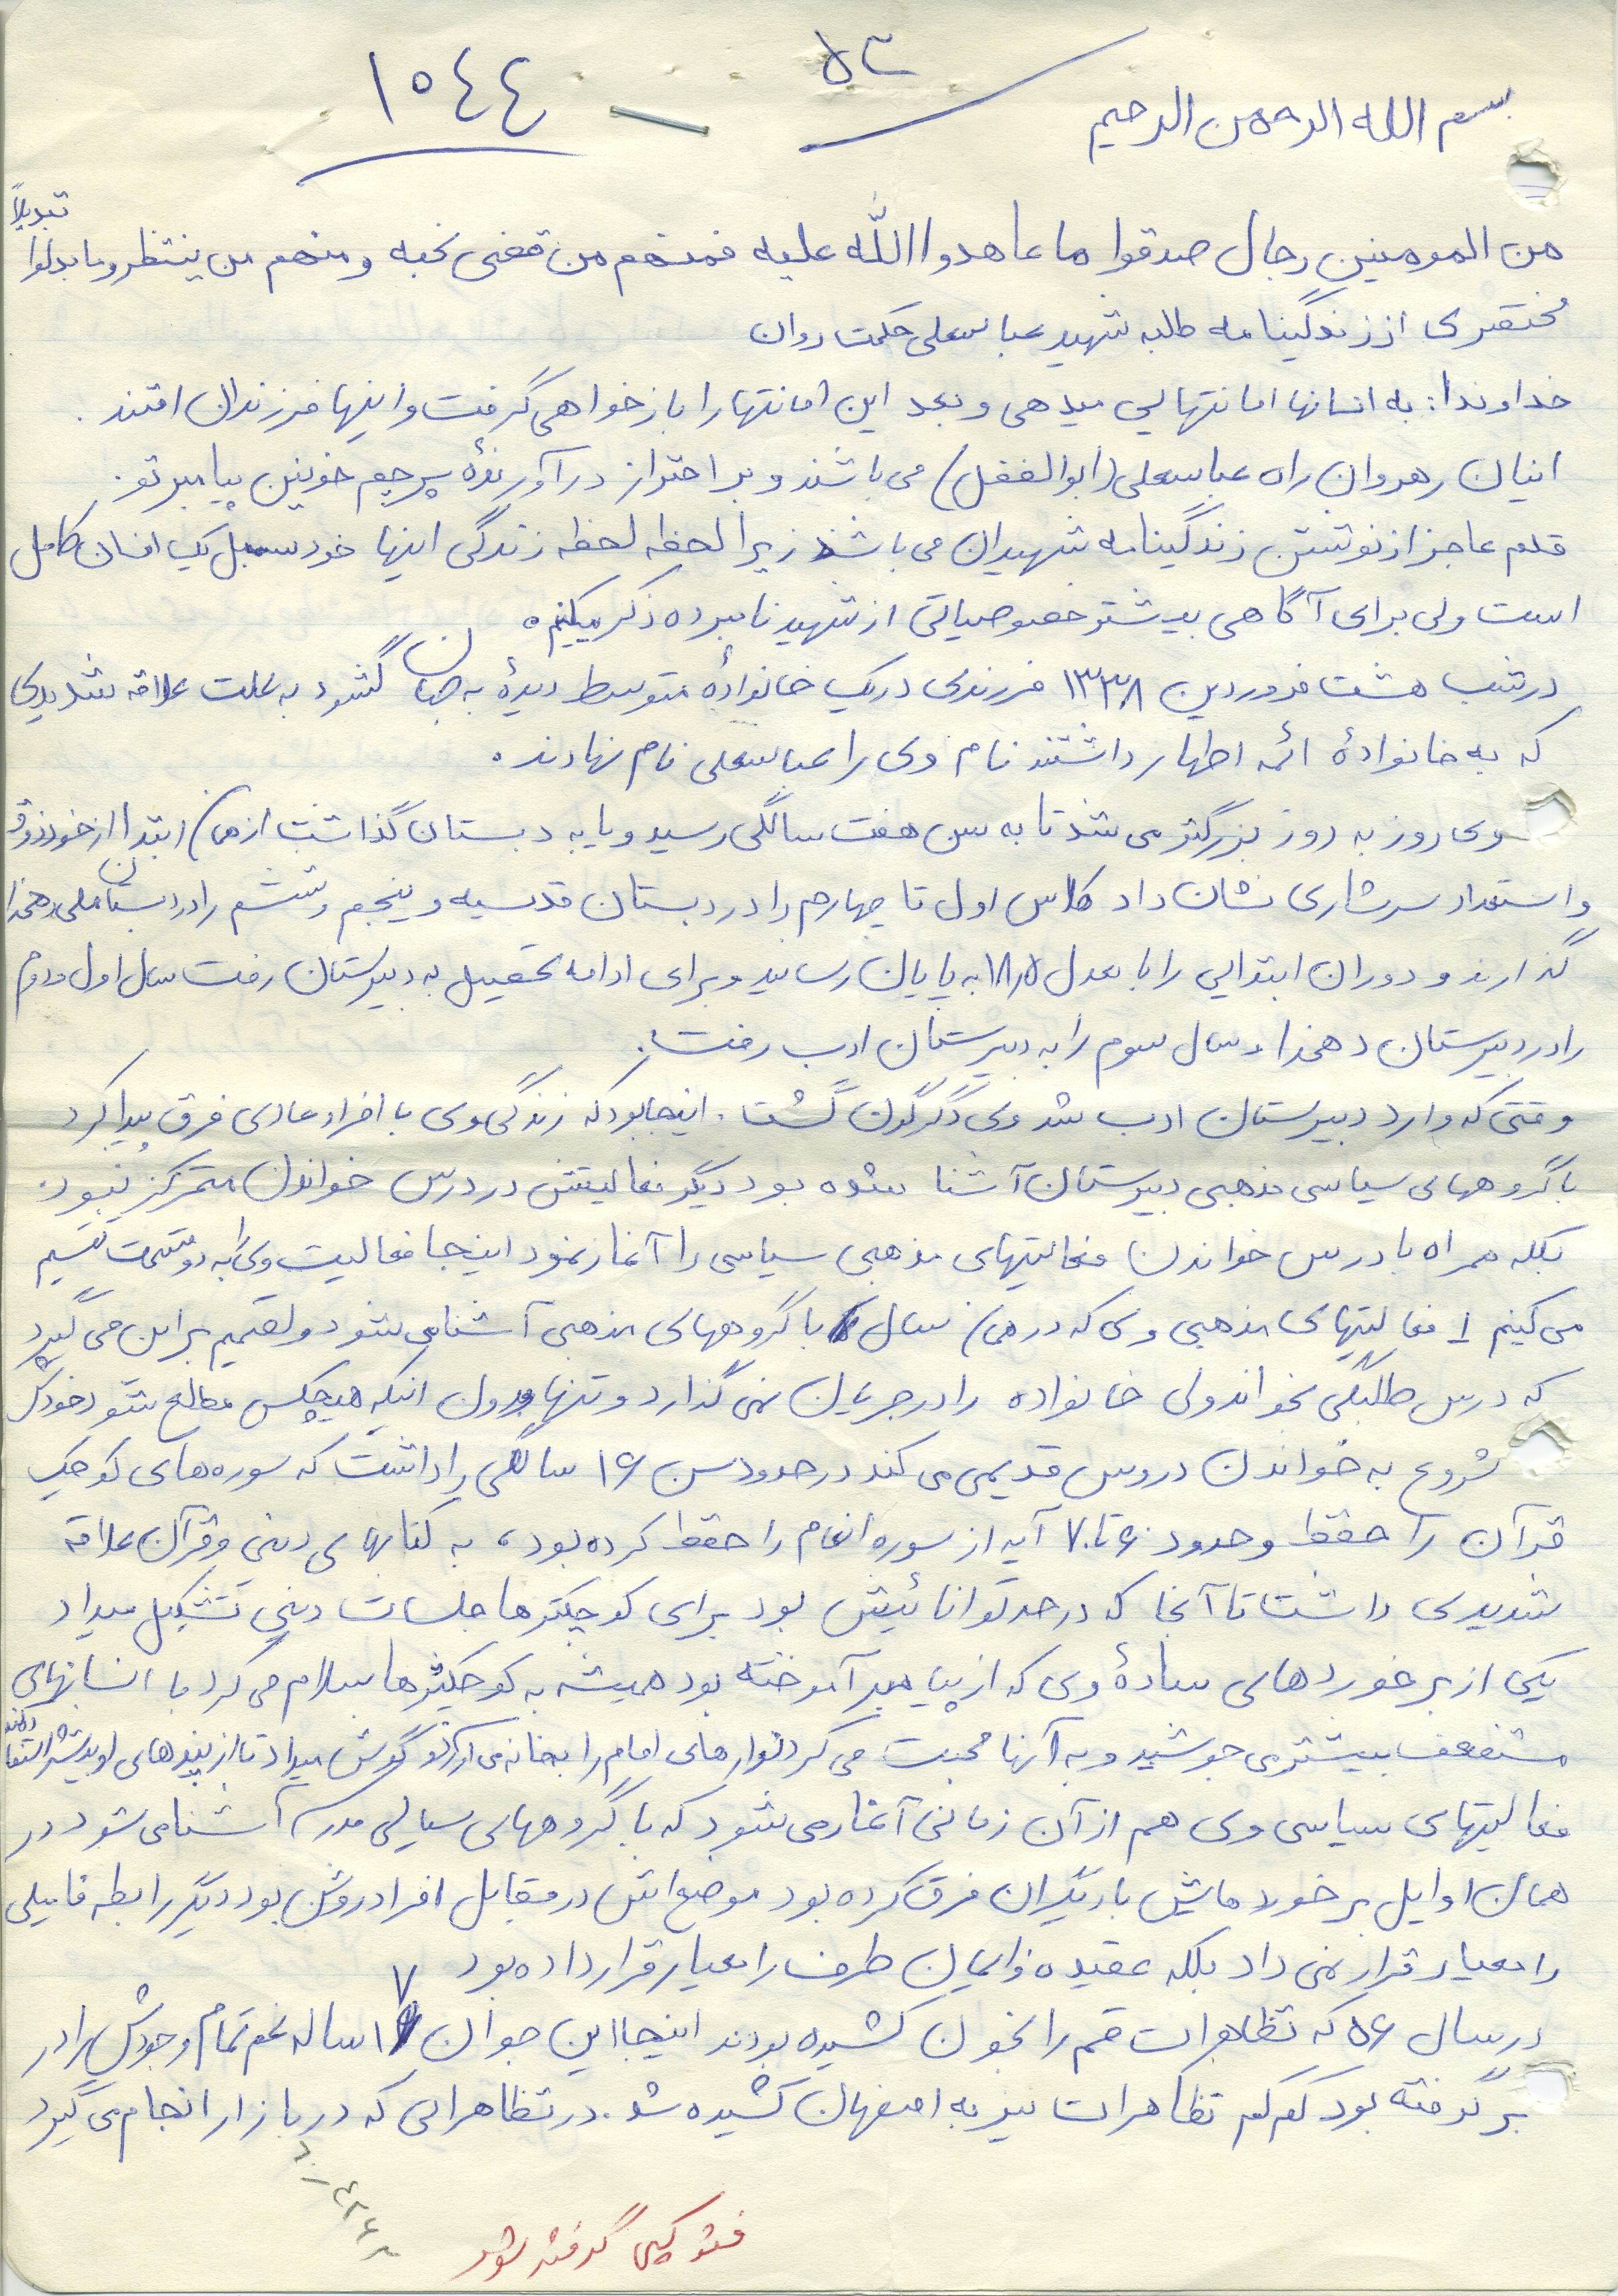 ۵۳
۱۰۴۴
بسم الله الرحمن الرحیم
من المومنین رجال صدقوا ما عاهدوا الله علیه فمنهم من قضی نحبه و منهم من ینتظر و ما بدلوا تبدیلاً
مختصری از زندگینامه طلبه شهید عباسعلی حکمت روان
خداوندا: به انسانها امانتهایی میدهی و بعد این امانتها را باز خواهی گرفت و اینها فرزندان امتند .
اینان رهروان راه عباسعلی (ابوالفضل) می باشند و بر احتراز درآورندۀ پرچم خونین پیامبر تو .
قلم عاجز از نوشتن زندگینامه شهیدان می باشد زیرا لحظه لحظه زندگی اینها خود سمبل یک انسان کامل
است ولی برای آگاهی بیشتر خصوصیاتی از شهید نامبرده ذکر میکنیم .
در شب هشت فروردین ۱۳۳۸ فرزندی در یک خانوادۀ متوسط دیدۀ به جهان گشود به علت علاقه شدیدی
که به خانوادۀ ائمه اطهار داشتند نام وی را عباسعلی نام نهادند .
وی روز به روز بزرگتر می شد تا به سن هفت سالگی رسید و پا به دبستان گذاشت از همان ابتدا از خود ذوق
و استعداد سرشاری نشان داد کلاس اول تا چهارم را در دبستان قدسیه و پنجم و ششم را در دبستان ملی دهخدا
گذارند و دوران ابتدایی را با معدل ۱۸٫۵ به پایان رسانید و برای ادامه تحصیل به دبیرستان رفت سال اول و دوم
را در دبیرستان دهخدا و سال سوم را به دبیرستان ادب رفت .
وقتی که وارد دبیرستان ادب شد وی دگرگون گشت . اینجا بود که زندگی وی با افراد عادی فرق پیدا کرد
با گروههای سیاسی مذهبی دبیرستان آشنا شده بود دیگر فعالیتش در درس خواندن متمرکز نبود .
بلکه همراه با درس خواندن فعالیتهای مذهبی سیاسی را آغاز نمود اینجا فعالیت وی را به دو قسمت تقسیم
می کنیم ۱ فعالیتهای مذهبی وی که در همان سال با گروههای مذهبی آشنا می شود و تصمیم بر این می گیرد
که درس طلبگی بخواند ولی خانواده را در جریان نمی گذارد و تنها بدون اینکه هیچکس مطلع شود خودش
شروع به خواندن دروس قدیمی می کند در حدود سن ۱۶ سالگی را داشت که سوره های کوچک
قرآن را حفظ و حدود ۶۰ تا ۷۰ آیه از سوره انعام را حفظ کرده بود ، به کتابهای دینی و قرآن علاقه
شدیدی داشت تا آنجا که در حد توانائیش بود برای کوچکترها جلسات دینی تشکیل میداد
یکی از برخوردهای سادۀ وی که از پیامبر آموخته بود همیشه به کوچکترها سلام می کرد با انسانهای
مستضعف بیشتر می جوشید و به آنها محبت می کرد نوارهای امام را بخانه می آورد و گوش میداد تا از پندهای او بیشتر استفاده کند
فعالیتهای سیاسی وی هم از آن زمانی آغاز می شود که با گروههای سیاسی مدرسه آشنا می شود در
همان اوایل برخوردهایش با دیگران فرق کرده بود موضع اش در مقابل افراد روشن بود دیگر رابطه فامیلی
را معیار قرار نمی داد بلکه عقیده و ایمان طرف را معیار قرار داده بود
در سال ۵۶ که تظاهرات قم را بخون کشیده بودند اینجا این جوان ۱۷ ساله غم تمام وجودش را در
بر گرفته بود کم کم تظاهرات نیز به اصفهان کشیده شد . در تظاهراتی که در بازار انجام می گیرد
فتوکپی گرفته شود